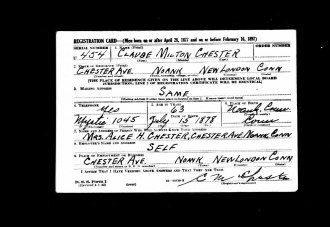 REGISTRATION CARD—(Men born on or after April 28, 1877 and on or before February 16, 1897)
SERIAL NUMBER 1. NAME (Print) ORDER NUMBER
U 454 CLAUDE MILTON CHESTER
(First) (Middle) (Last)
2. PLACE OF RESIDENCE (Print)
CHESTER AVE. NOANK NEW LONDON CONN
(Number and street) (Town, township, village, or city) (County) (State)
[THE PLACE OF RESIDENCE GIVEN ON THE LINE ABOVE WILL DETERMINE LOCAL BOARD
JURISDICTION; LINE 2 OF REGISTRATION CERTIFICATE WILL BE IDENTICAL]
3. MAILING ADDRESS
SAME
4. TELEPHONE 5. AGE IN YEARS 6. PLACE OF BIRTH
63 Noank, Conn
DATE OF BIRTH
Mystic 1045 July 13 1878 Conn
7. NAME AND ADDRESS OF PERSON WHO WILL ALWAYS KNOW YOUR ADDRESS
MRS. ALICE H. CHESTER, CHESTER AVE NOANK, CONN
8. EMPLOYER'S NAME AND ADDRESS
SELF
9. PLACE OF EMPLOYMENT OR BUSINESS
CHESTER AVE. NOANK NEW LONDON CONN
I AFFIRM THAT I HAVE VERIFIED ABOVE ANSWERS AND THAT THEY ARE TRUE.
D. S. S. FORM 1
C M Chester